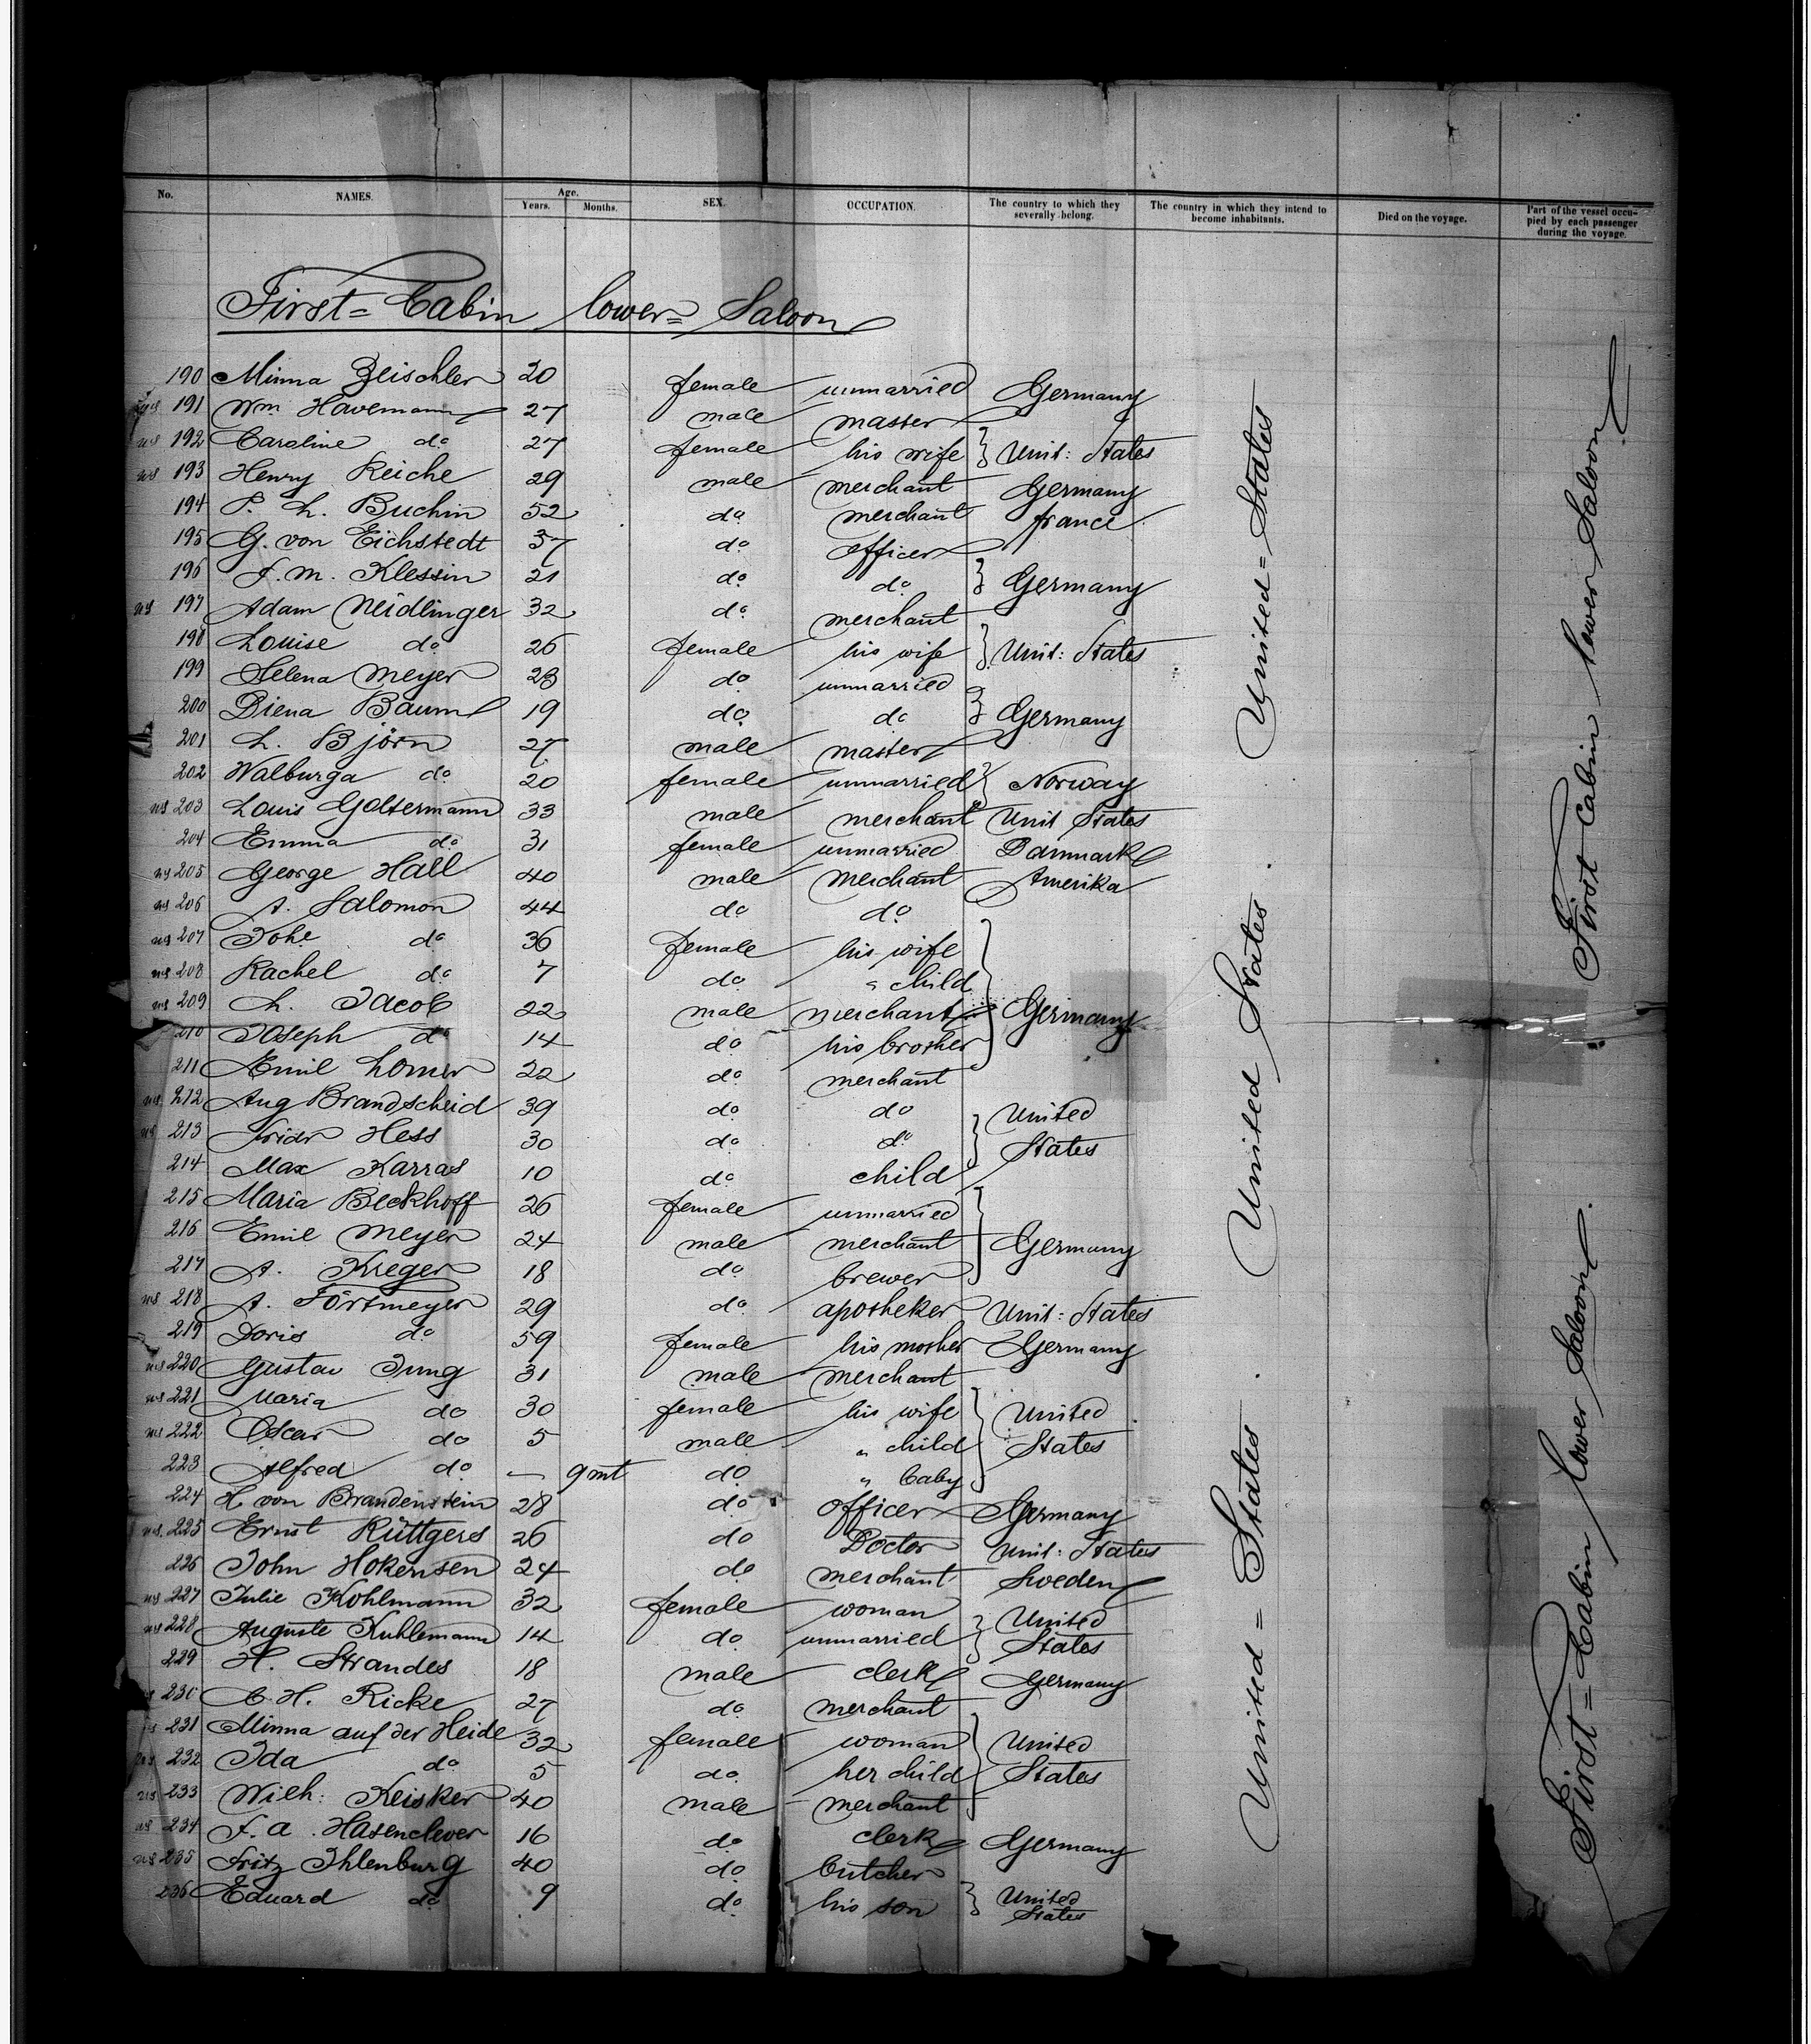 No. NAMES. Age. Years. Months. SEX. OCCUPATION. The country to which they severally belong. The country in which they intend to become inhabitants. Died on the voyage. Part of the vessel occupied by each passenger during the voyage.
First=Cabin lower=Saloon
190 Minna Zeischler 20 female unmarried Germany
191 Wm Havemann 27 male master
us 192 Caroline do 27 female his wife } Unit: States
us 193 Henry Reiche 29 male merchant Germany
194 P. L. Buchin 52 do merchant france
195 G. von Eichstedt 37 do officer
196 F. m. Klessin 21 do do } Germany
us 197 Adam Neidlinger 32 do merchant
198 Louise do 26 female his wife } Unit: States
199 Helena Meyer 28 do unmarried
200 Diena Baum 19 do do } Germany
201 L. Björn 27 male master
202 Walburga do 20 female unmarried } Norway
us 203 Louis Goltermann 33 male merchant Unit States
204 Emma do 31 female unmarried Danmark
us 205 George Hall 40 male merchant Amerika
us 206 A. Salomon 44 do do
us 207 Johe do 36 female his wife
us 208 Rachel do 7 do " child
us 209 L. Jacob 22 male merchant } Germany
210 Joseph do 14 do his brother
211 Emil Lomer 22 do merchant
us 212 Aug Brandscheid 39 do do United
us 213 Fridr Hess 30 do do } States
214 Max Karras 10 do child
215 Maria Beckhoff 26 female unmarried
216 Emil Meyer 24 male merchant } Germany
217 A. Kreger 18 do brewer
us 218 A. Förtmeyer 29 do apotheker Unit: States
219 Doris do 59 female his mother Germany
us 220 Gustav Jung 31 male merchant
us 221 Maria do 30 female his wife United
us 222 Oscar do 5 male " child } States
223 Alfred do — 9 mt do " baby
224 H von Brandenstein 28 do officer Germany
us 225 Ernst Rüttgers 26 do Doctor Unit: States
226 John Hokensen 24 do merchant Sweden
us 227 Julie Kohlmann 32 female woman United
us 228 Auguste Kuhlemann 14 do unmarried } States
229 H. Strandes 18 male clerk Germany
230 C. H. Ricke 27 do merchant
231 Minna auf der Heide 32 female woman United
us 232 Ida do 5 do her child } States
us 233 Wilh: Keisker 40 male merchant
us 234 F. a. Hasenclever 16 do clerk Germany
us 235 Fritz Ihlenburg 40 do butcher
236 Eduard do 9 do his son } United States
United=States
United States
United=States
First Cabin lower Saloon
First=Cabin lower Saloon